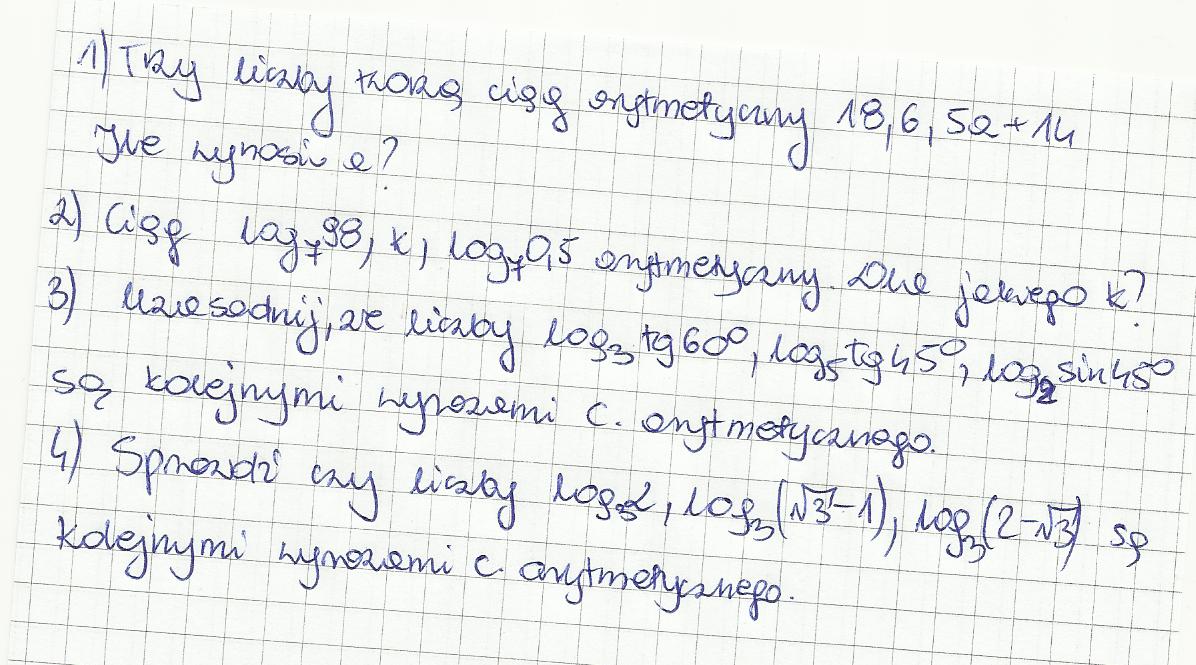 1) Trzy liczby tworzą ciąg arytmetyczny 18, 6, 5a + 14
Ile wynosi a?
2) Ciąg log₇98, k, log₇0,5 arytmetyczny. Dla jakiego k?
3) Uzasadnij, że liczby log₃tg60°, log₅tg45°, log₂sin45°
są kolejnymi wyrazami c. arytmetycznego.
4) Sprawdź czy liczby log₃2, log₃(√3-1), log₃(2-√3) są
kolejnymi wyrazami c. arytmetycznego.